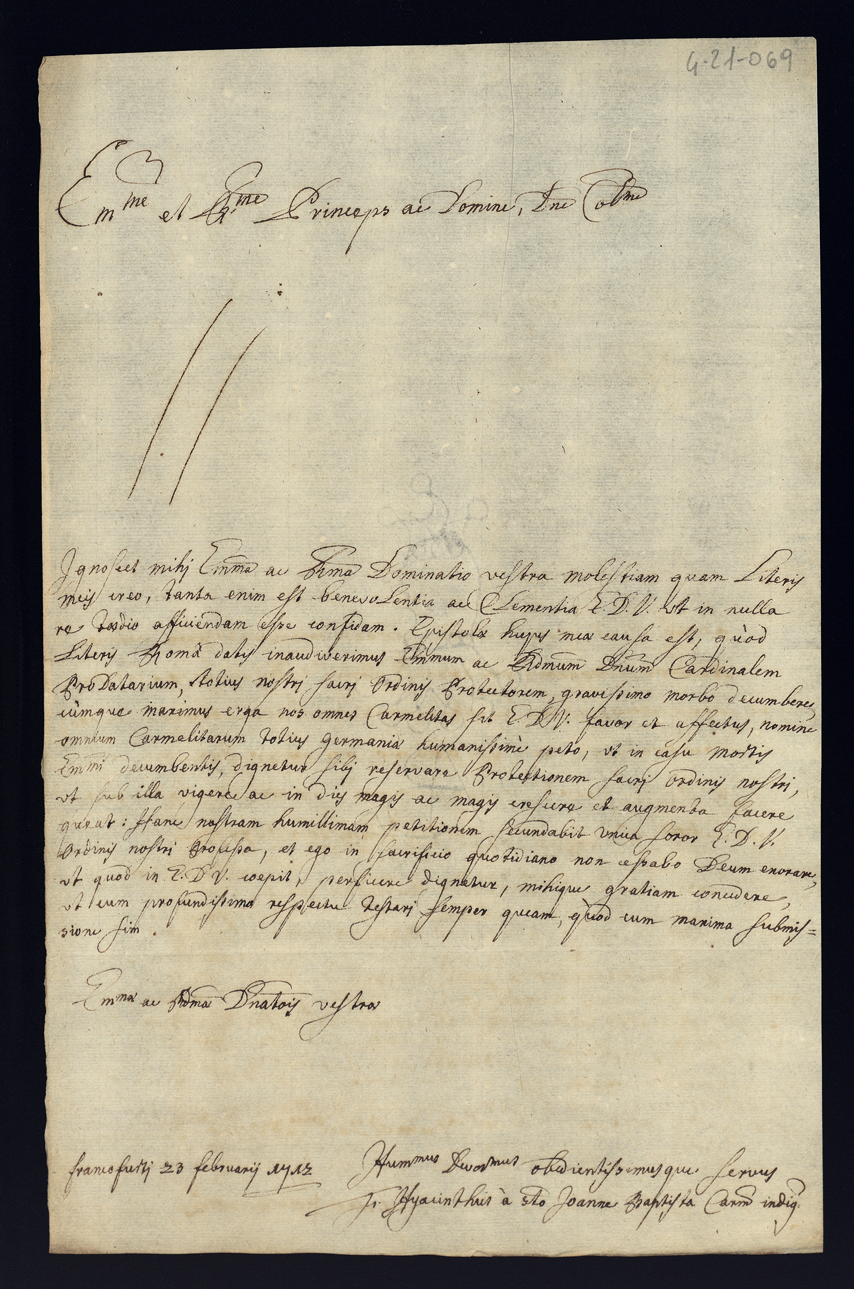 4-21-069
Em^me et R^me Princeps ac Domine, Dne Col^me
Ignoscet mihi Emma ac Rma Dominatio vestra molestiam quam Literis
meis creo, tanta enim est benevolentia ac Clementia E. D. V. ut in nulla
re tædio afficiendam esse confidam. Epistolæ hujus meæ causa est, quòd
Literis Româ datis inaudiverimus Emmum ac Rdmum Dnum Cardinalem
ProDatarium, totius nostri sacri Ordinis Protectorem, gravissimo morbo decumbere,
cùmque maximus erga nos omnes Carmelitas sit E. D. V. favor et affectus, nomine
omnium Carmelitarum totius germaniæ humanissimè peto, ut in casu mortis
Emmi decumbentis, dignetur sibi reservare Protectionem sacri ordinis nostri,
ut sub illa vigere ac in dies magis ac magis crescere et augmenta facere
queat: Hanc nostram humillimam petitionem secundabit unica soror E. D. V.
Ordinis nostri Professa, et ego in sacrificio quotidiano non cessabo Deum exorare,
ut quod in E. D. V. coepit, perficere dignetur, mihique gratiam concedere,
ut cum profundissimo respectu testari semper queam, quòd cum maxima submis=
sione sim.
Emmæ ac Rdmæ Dnatois vestræ
francofurti 23 februarij 1712
Hum^mus Devot^mus obedientissimusque servus
fr. Hyacinthus à S^to Joanne Baptista Carm indig.